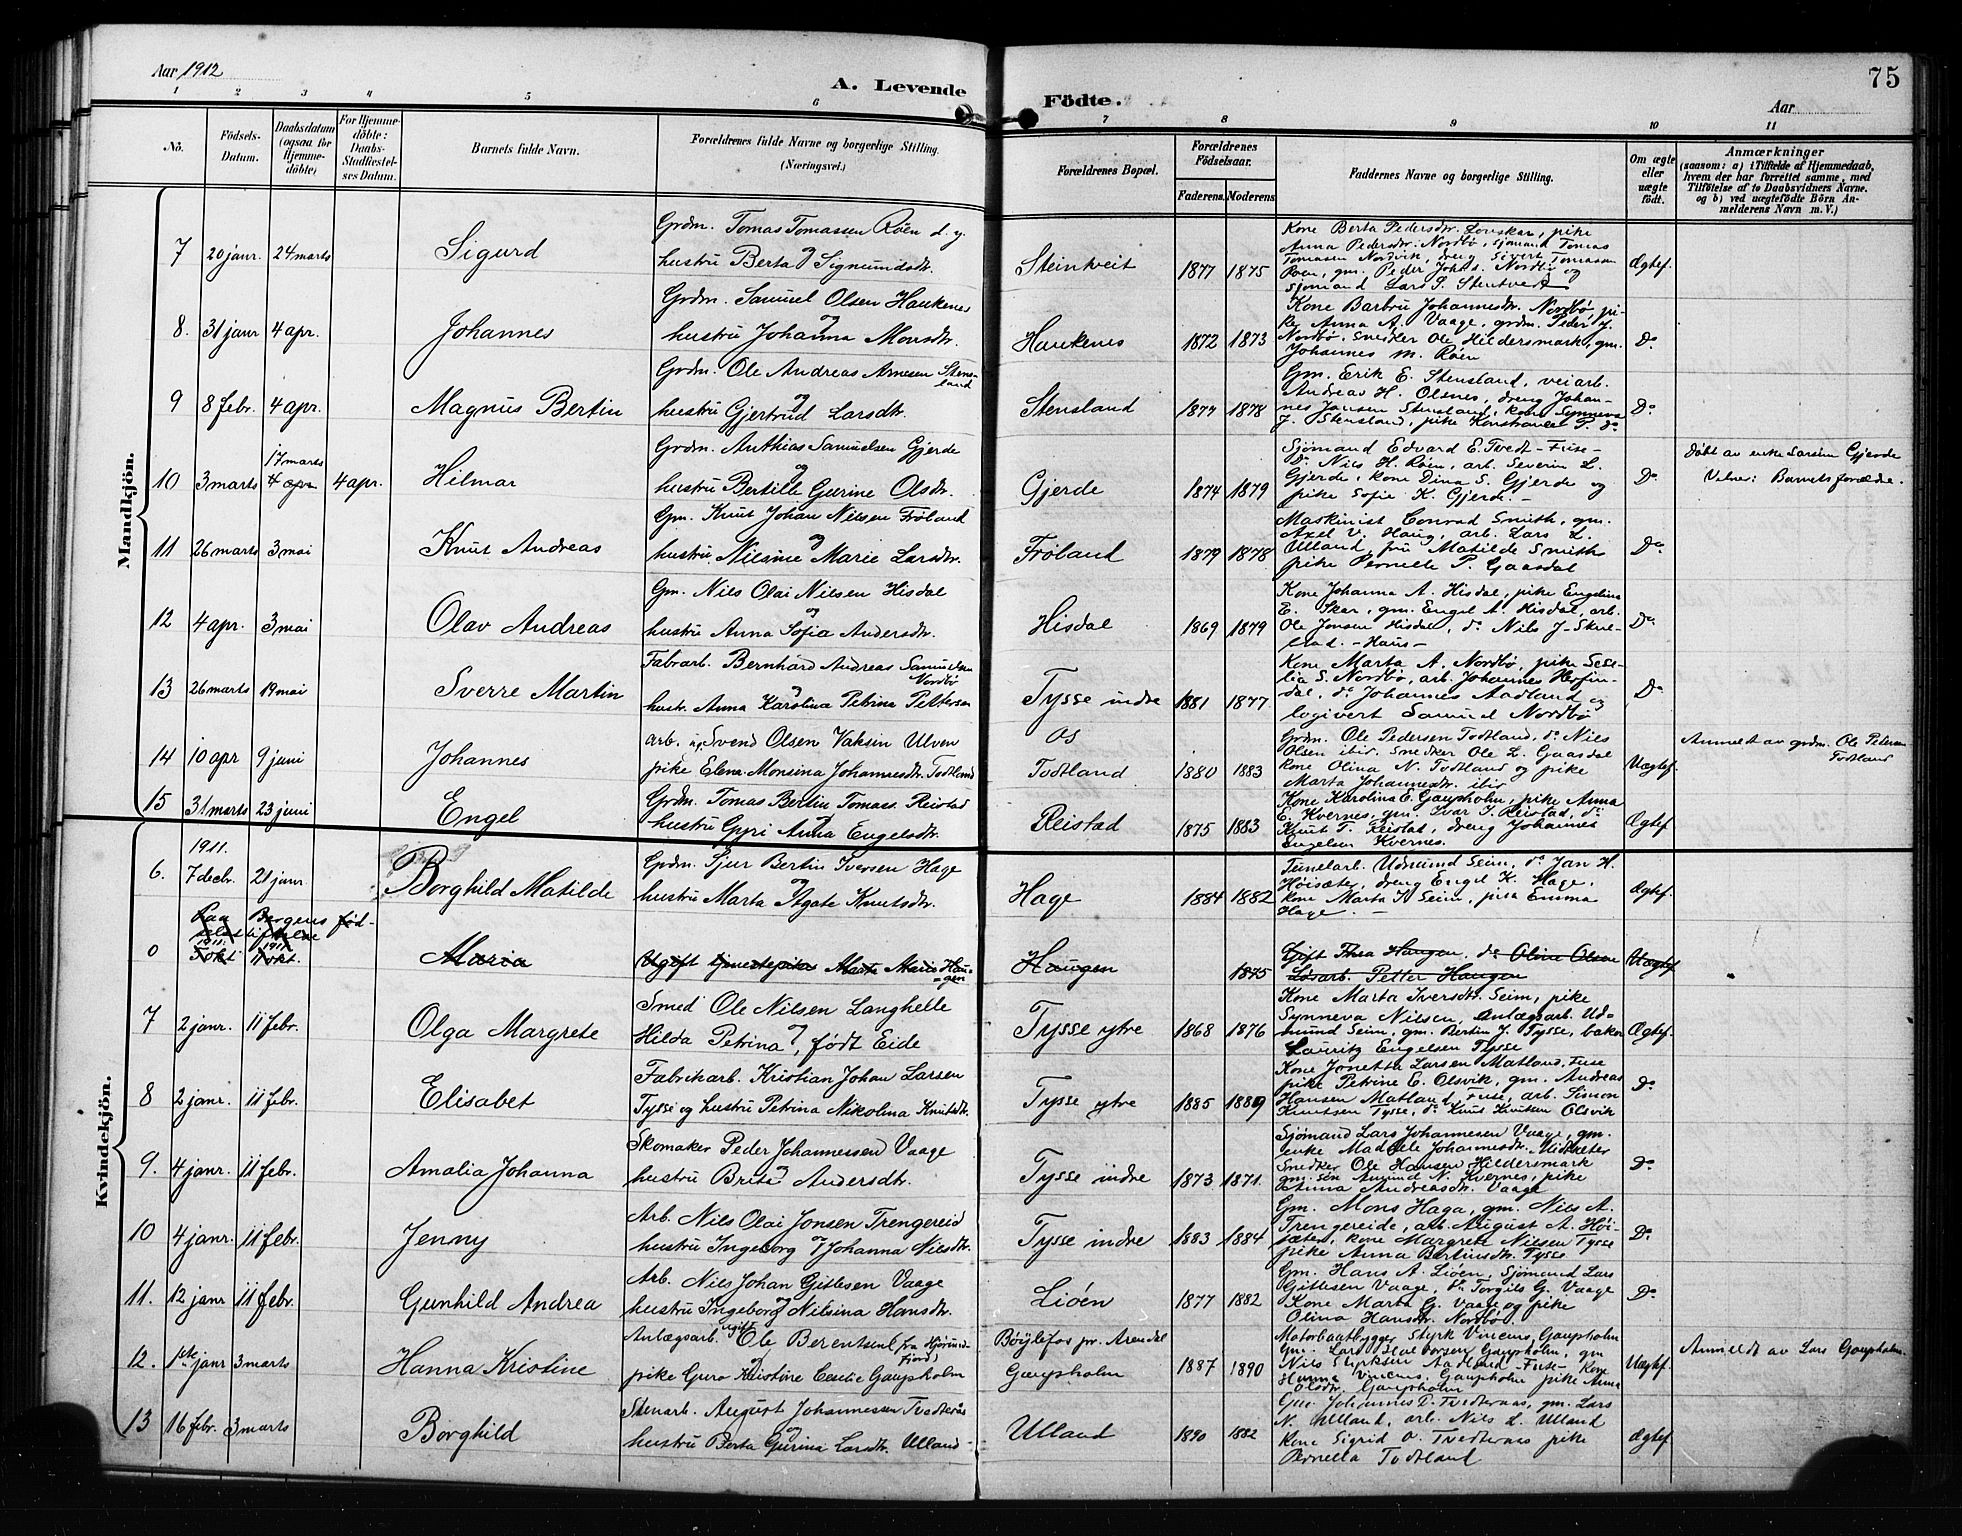 Aar 1912
A. Levende Födte.
75
Aar
1 2 3 4 5 6 7 8 9 10 11
No.
Födsels-Datum.
Daabsdatum (ogsaa for Hjemme-döbte)
For Hjemme-döbte: Daabs-Stadfæstel-ses Datum.
Barnets fulde Navn.
Forældrenes fulde Navne og borgerlige Stilling. (Næringsvei.)
Forældrenes Bopæl.
Forældrenes Födselsaar.
Faderens. Moderens
Faddernes Navne og borgerlige Stilling.
Om ægte eller uægte født.
Anmærkninger
(saasom: a) i Tilfælde af Hjemmedaab, hvem der har forrettet samme, med Tilföielse af to Daabsvidners Navne. og b) ved uægtefödte Börn An-melderens Navn m. V.)
Mandkjön.
7 20 janr. 24 marts Sigurd
Grdm. Tomas Tomassen Röen d. y.
og
hustru Berta Sigmundsdtr.
Steinkveit 1877 1875
Kone Berta Pedersdtr. Lonskar, pike
Anna Pedersdtr. Nordbø, sjömand Tomas
Tomasen Nordvik, dreng Sivert Tomasen
Röen, gm. Peder Johs. Nordbø og
sjömand Lars S. Stentvedt
Ægtef.
8. 31 janr 4 apr. Johannes
Grdm. Samuel Olsen Haukenes
og
hustru Johanna Monsdtr.
Haukenes 1872 1873
Kone Barbru Johannesdtr. Nordbø, pi-
ke Anna A. Vaage, grdm. Peder J.
Nordbø, Snedker Ole Hildersmark, gm.
Johannes M. Röen
Do
9 8 febr. 4 apr. Magnus Bertin
Grdm. Ole Andreas Arnesen Stens-
land
og
hustru Gjertrud Larsdtr.
Stensland 1877 1878
Gm. Erik E. Stensland, veiarb.
Andreas H. Olsnes, dreng Johan-
nes Jansen Stensland, kone Synneva
J. Stensland, pike Konstance P. do
Do
10 3 marts 17 marts 4 apr 4 apr. Hilmar
Grdm. Anthias Samuelsen Gjerde
og
hustru Bertille Gurine Olsdtr.
Gjerde 1874 1879
Sjømand Edvard E. Tvedt - Fuse -
Do Nils H. Röen, arb. Severin L.
Gjerde, kone Dina S. Gjerde og
pike Sofie K. Gjerde. -
Do
Döbt av enke Larsine Gjerde
Vidner: Barnets forældre.
11 26 marts 3 mai Knut Andreas
Gm. Knut Johan Nilsen Frøland
og
hustru Nilsine Marie Larsdtr.
Frøland 1879 1878
Maskinist Conrad Smith, gm.
Axel V. Haug, arb. Lars L.
Ulland, fru Matilde Smith
pike Pernelle P. Gaasdal
Do
12 4 apr. 3 mai Olav Andreas
Gm. Nils Olai Nilsen Hisdal
og
hustru Anna Sofia Andersdtr.
Hisdal 1869 1879
Kone Johanna A. Hisdal, pike Engelina
E. Skar, gm. Engel A. Hisdal, arb.
Ole Jonsen Hisdal, do Nils J. Skul-
stad. - Haus -
Do
13 26 marts 19 mai Sverre Martin
Fabrarb. Bernhard Andreas Samuelsen
Nordbø
og
hustr. Anna Karolina Petrina Pettersen
Tysse indre 1881 1877
Kone Marta A. Nordbø, pike Sese-
lia S. Nordbø, arb. Johannes Herfin-
dal, do Johannes Aadland og
logivert Samuel Nordbø
Do
14 10 apr 9 juni Johannes
arb. ug Svend Olsen Vaksin Ulven
pike Elena Monsina Johannesdtr. Todtland
Os
Todtland 1880 1883
Grdm. Ole Pedersen Todtland, do Nils
Olsen ibid. Snedker Ole L. Gaasdal
kone Olina N. Todtland og pike
Marta Johannesdtr. ibid
Uægtef.
Anmeldt av grdm. Ole Petersen
Todtland
15 31 marts 23 juni Engel
Grdm. Tomas Bertin Tomass. Reistad
og
hustru Gyri Anna Engelsdtr.
Reistad 1875 1883
Kone Karolina E. Gaupholm, pike Anna
E. Kvernes, gm. Ivar J. Reistad, do
Knut T. Reistad, dreng Johannes
Engelsen Kvernes.
Ægtef.
Kvindekjön.
6. 1911. 7 decbr. 21 janr Borghild Matilde
Grdm. Sjur Bertin Iversen Hage
og
hustru Marta Agate Knutsdtr.
Hage 1884 1882
Tunelarb. Udmund Seim, do Jan H.
Höisæter, dreng Engel K. Hage.
kone Marta K. Seim, pike Emma
Hage. -
Ægtef.
Paa Bergens fød-
selsstiftelse
0 1911. 7 okt 1911. 11 okt. Maria
Ugift tjenestepike Marte Marie Hau-
gen
Haugen 1875
Gift Thea Haugen, do Oline Olsen
Løsarb. Petter Haugen
Uægtef
7 2 janr. 11 febr. Olga Margrete
Smed Ole Nilsen Langhelle
og
Hilda Petrina, født Eide
Tysse ytre 1868 1876
Kone Marta Iversdtr. Seim, pike
Synneva Nilsen, anlægsarb. Ud-
mund Seim, gm. Bertin J. Tysse, baker
Lauritz Engelsen Tysse
Ægtef.
8 2 janr. 11 febr. Elisabet
Fabrikarb. Kristian Johan Larsen
Tysse og hustru Petrina Nikolina Knutsdtr.
Tysse ytre 1885 1889
Kone Jonetta Larsen Matland, Fuse
pike Petrine E. Olsvik, gm. Andreas
Hansen Matland, Fuse, arb. Simon
Knutsen Tysse, do Knut Knutsen Olsvik
Do
9. 4 janr. 11 febr. Amalia Johanna
Skomaker Peder Johannessen Vaage
og
hustru Brita Andersdtr.
Tysse indre 1873 1871
Sjømand Lars Johannesen Vaage, gm.
enke Madele Johannesdtr. Midtsæter
Snedker Ole Hansen Hildersmark
gm. søn Amund N. Kvernes, pike
Anna Andreasdtr. Vaage
Do
10 4 janr. 11 febr. Jenny
Arb. Nils Olai Jonsen Trengereid
og
hustru Ingeborg Johanna Nilsdtr.
Tysse indre 1883 1884
Gm. Mons Haga, gm. Nils A.
Trengereide, arb. August A. Höi-
sæter, kone Margrete Nilsen Tysse
pike Anna Bertinsdtr. Tysse
Do
11. 12 janr 11 febr. Gunhild Andrea
Arb. Nils Johan Gitlesen Vaage
og
hustru Ingeborg Nilsina Hansdtr.
Liøen 1877 1882
Gm. Hans A. Liøen, Sjømand Lars
Gitlesen Vaage, do Torgils G. Vaage
Kone Marta G. Vaage og pike
Olina Hansdtr. Nordbø.
Do
12. 1ste janr 3 marts Hanna Kristine
Anlægsarb. ugift Ole Berentsen (fra Hjørund-
fjord)
og
pike Guro Kristine Cecilie Gaupholm
Bøylefos pr. Arendal
Gaupholm 1887 1890
Motorbaatbygger Styrk Vincens, Gaupholm
Gm. Lars Halvorsen Gaupholm, gm
Nils Styrksen Aadland - Fuse - Kone
Hanna Vincens, Gaupholm pike Anna
Olsdtr. Gaupholm
Uægtef.
Anmeldt av Lars Gaupholm.
13 16 febr. 3 marts Borghild
Stenarb. August Johannessen Tvedternes
og
hustru Berta Gurina Larsdtr. Ulland -
Ulland 1890 1882
Gm. Johannes D. Tvedternas, gm. Lars
N. Ulland, arb. Nils L. Ulland
Kone Sigrid O. Tvedternas pike
Pernella Todtland
Ægtef.